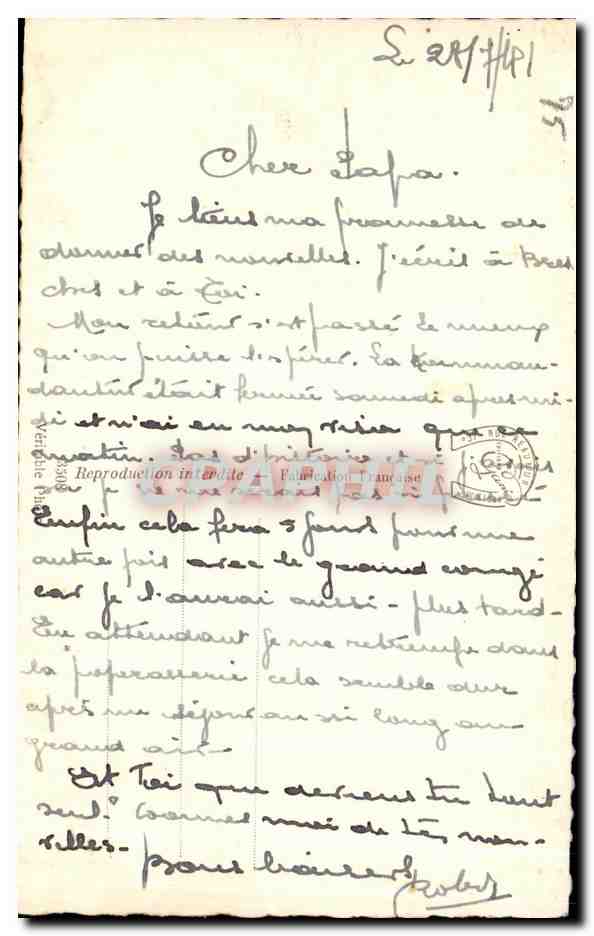 Le 28/7/41
Cher Papa.
Je tiens ma promesse de
donner des nouvelles. J'écris à Bres
ches et à Toi.
Mon retour s'est passé le mieux
qu'on puisse l'espérer. La Komman-
dantur était fermée samedi après-mi-
di et n'ai eu mon visa que ce
matin. Pas d'histoire et si
je ne me serais pas
Reproduction interdite — Fabrication Française
Véritable
Enfin cela fera 5 jours pour une
autre fois avec le grand congé
car je l'aurai aussi - plus tard -
En attendant je me retrempe dans
la "paperasserie" cela semble dur
après un séjour aussi long au
grand air -
Et Toi que deviens tu tout
seul. Donnes moi de tes nou-
velles -
Bons baisers
Robert